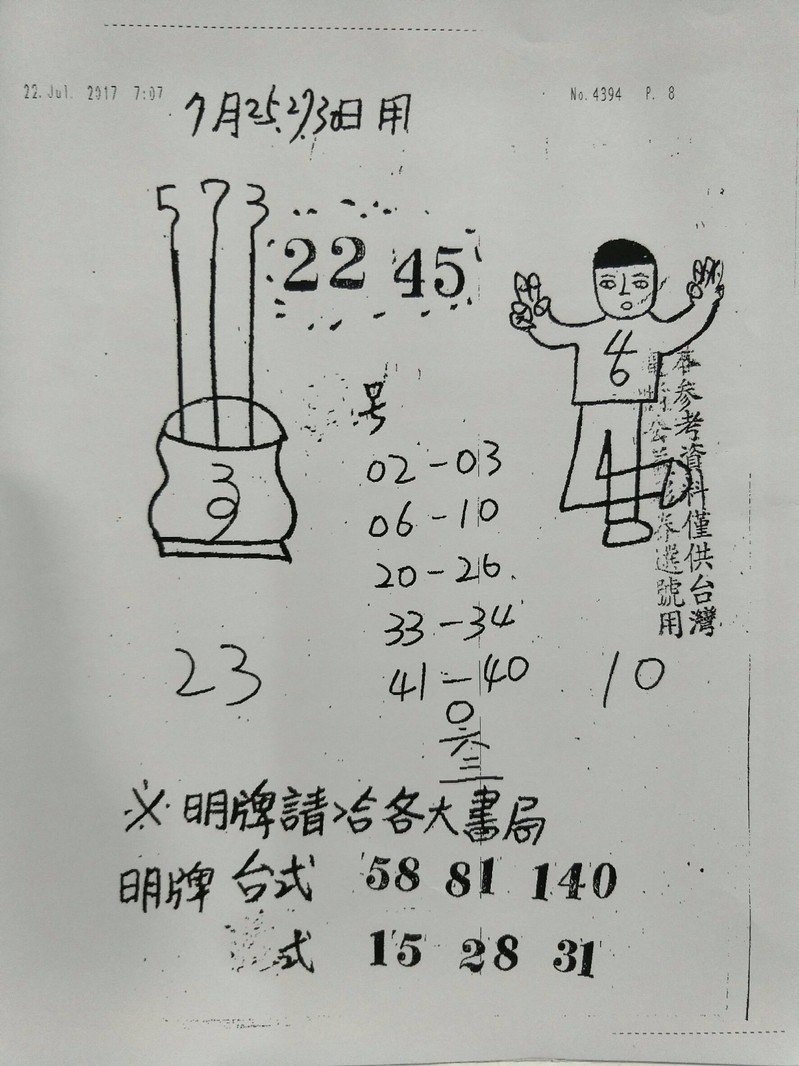 22.Jul. 2017 7:07
No.4394 P. 8
7月25.27.30日用
5 7 3
22 45
46
号
02-03
06-10
20-26
33-34
41-40
39
23
10
0
六
三
本參考資料僅供台灣
選號用
※明牌請洽各大書局
明牌 台式 58 81 140
式 15 28 31